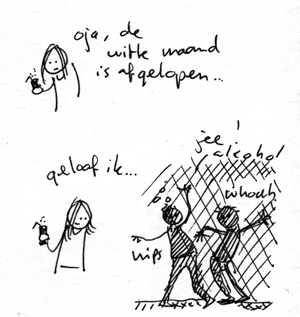 oja, de
witte maand
is afgelopen...
geloof ik...
jee!
alcohol
whooh
wips